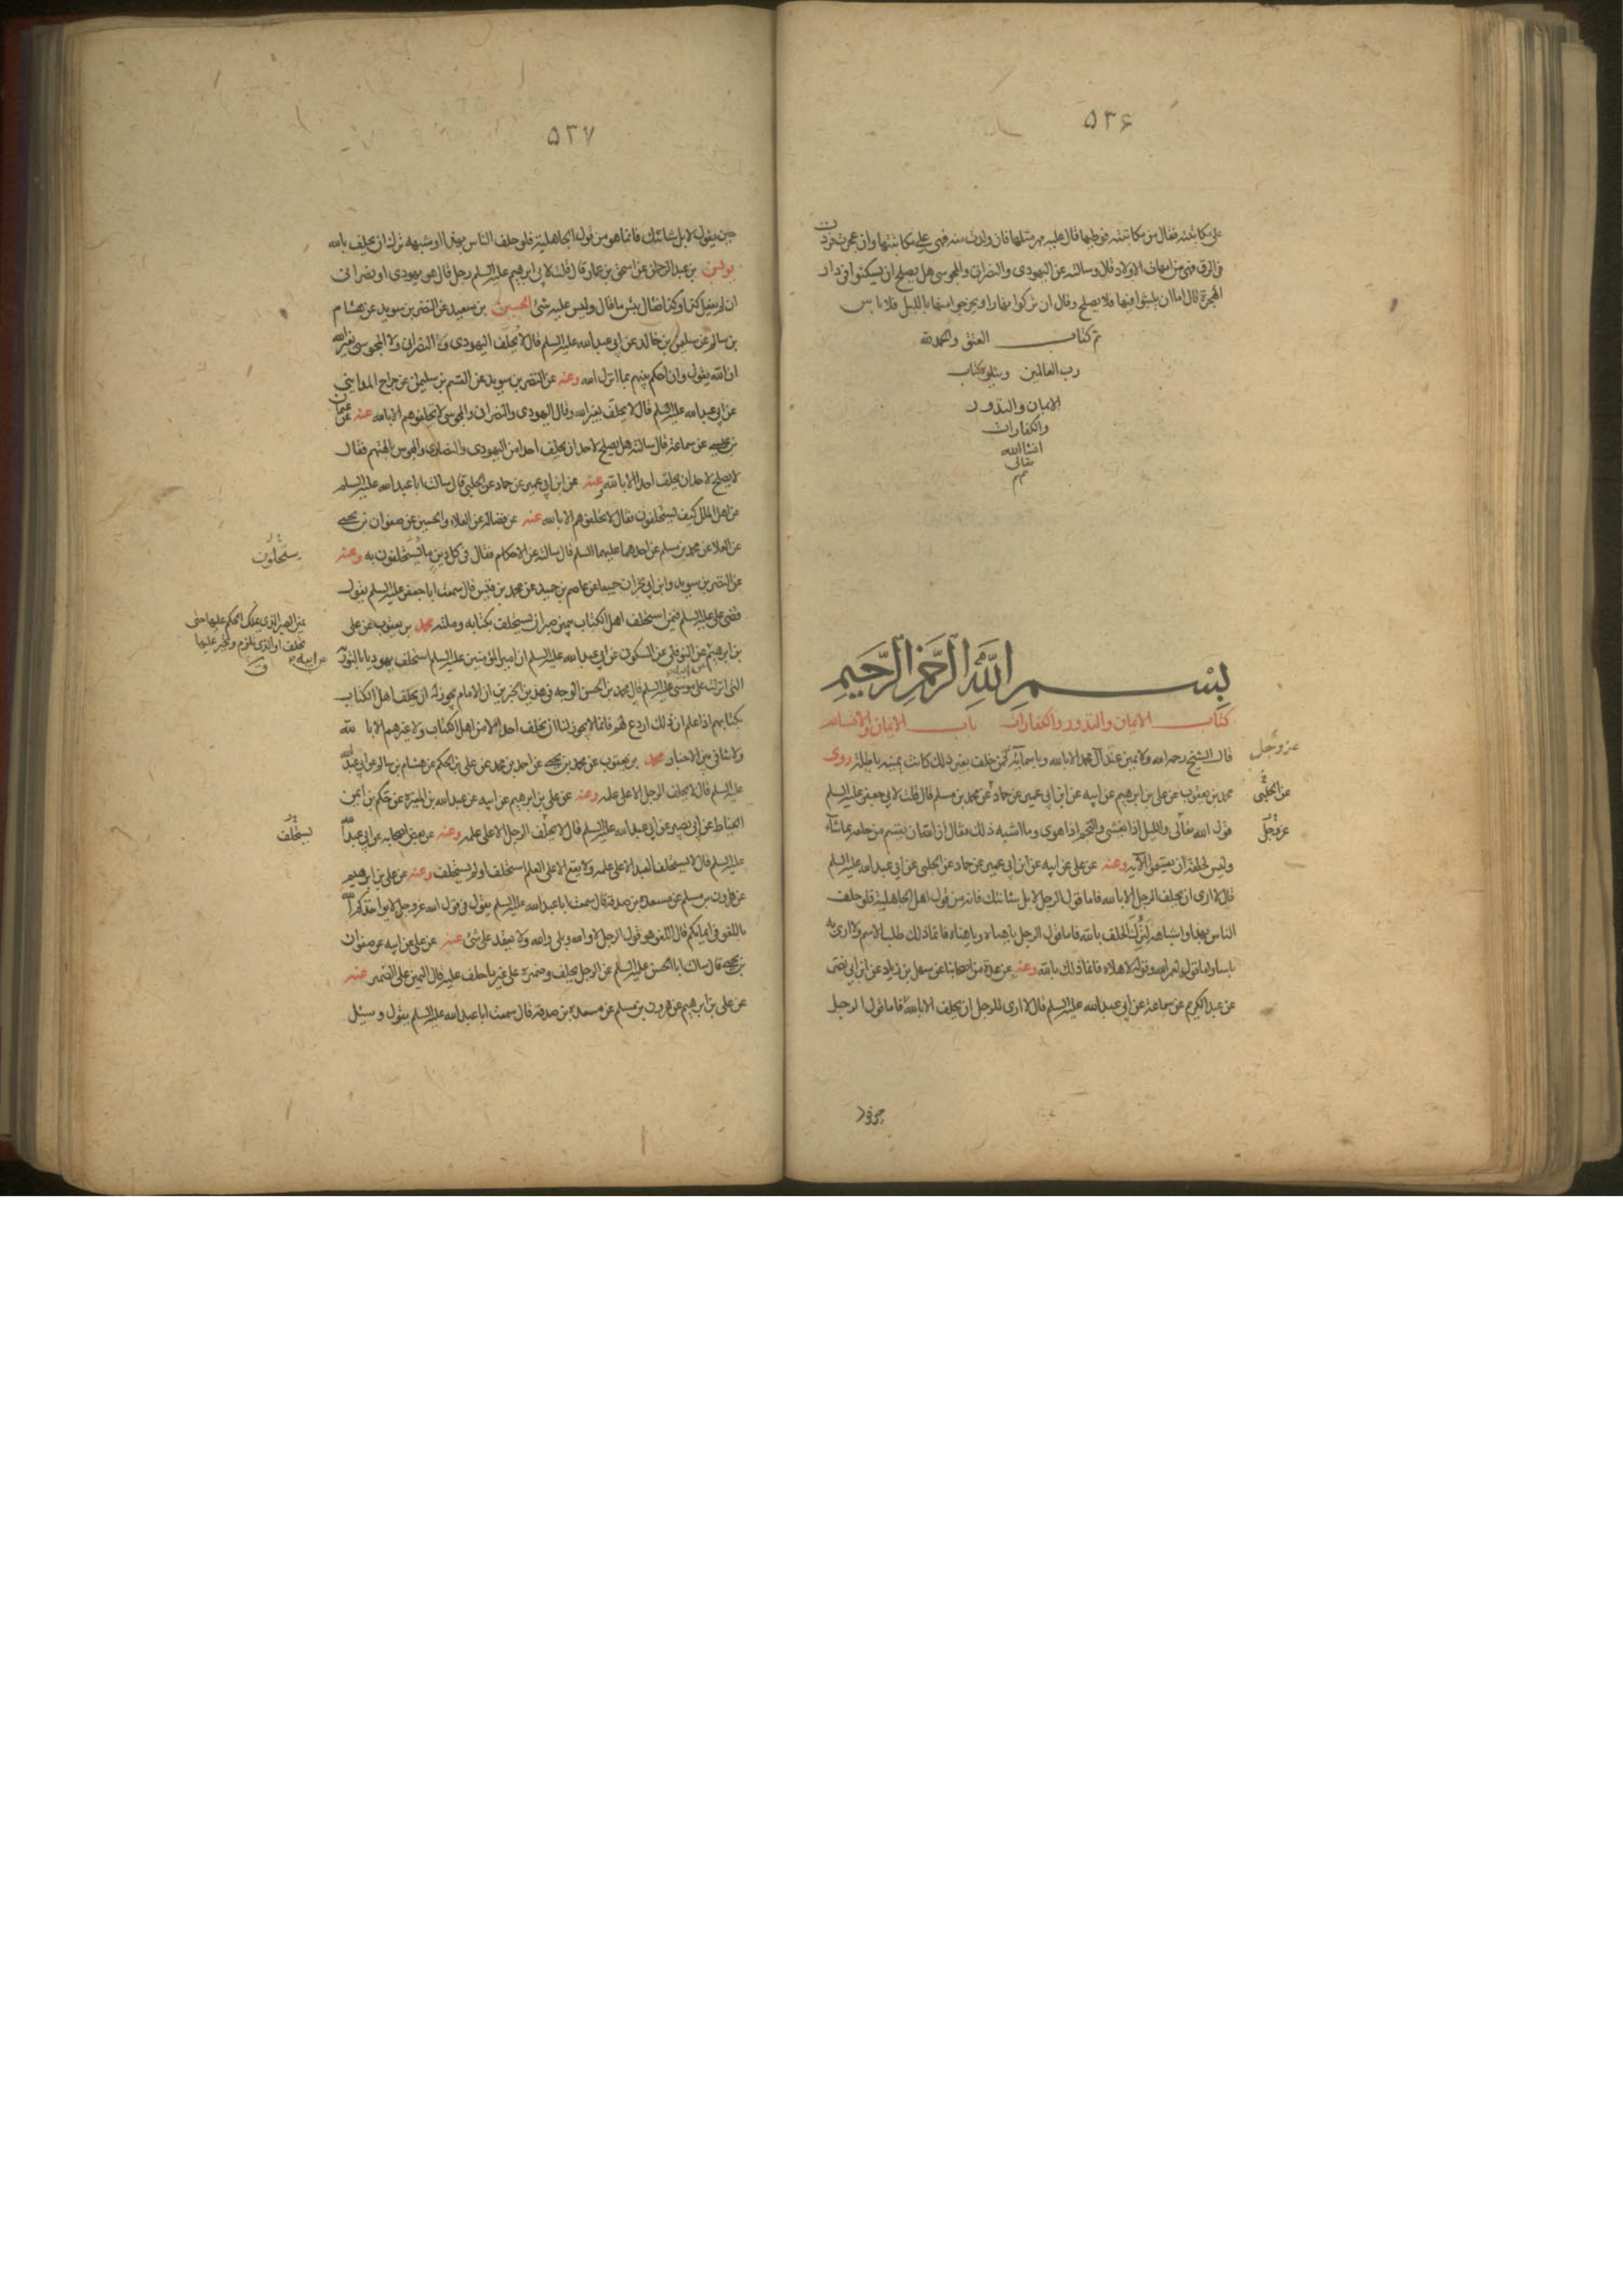 ۵۳۶
على مكاتبته فقال من مكاتبته فوطيها قال عليه مهر مثلها فان ولدت منه فهى على مكاتبتها وان عجزت فردت
فى الرق فهى من امهات الاولاد قال وسالته عن اليهودى والنصرانى والمجوسى هل يصلح ان يسكنوا فى دار
الهجرة قال اما ان يلبثوا فيها فلا يصلح وقال ان نزلوا نهارا ويخرجوا منها بالليل فلا باس
تم كتاب العتق والحمد لله
رب العالمين ويتلوه كتاب
الايمان والنذور
والكفارات
انشاالله
تعالى
تم
بسم الله الرحمن الرحيم
كتاب الايمان والنذور والكفارات باب الايمان والاقسام
قال الشيخ رحمه الله ولا يمين عند آل محمد الا بالله وباسمائه فمن حلف بغير ذلك كانت يمينه باطلة روى
عز وجل
محمد بن يعقوب عن على بن ابرهيم عن ابيه عن ابن ابي عمير عن حماد عن محمد بن مسلم قال قلت لابي جعفر عليه السلم
عن الحلبى
قول الله تعالى والليل اذا يغشى والنجم اذا هوى وما اشبه ذلك فقال ان لله ان يقسم من خلقه بما شاء
عز وجل
وليس لخلقه ان يقسموا الا به وعنه عن على عن ابيه عن ابن ابي عمير عن حماد عن الحلبى عن ابي عبد الله عليه السلم
قال لا ارى ان يحلف الرجل الا بالله فاما قول الرجل لا بل شانئك فانه من قول اهل الجاهلية فلو حلف
الناس بهذا واشباهه لترك الحلف بالله فاما قول الرجل ياهناه وياهناه فانما ذلك طلب الاسم ولا ارى به
باسا واما قوله لعمر الله وقوله لاهلاه فانما ذلك بالله وعنه عن عدة من اصحابنا عن سهل بن زياد عن ابن ابي نصر
عن عبد الكريم عن سماعة عن ابي عبد الله عليه السلم قال لا ارى للرجل ان يحلف الا بالله فاما قول الرجل
۵۳۷
حين يقول لا بل شانئك فانما هو من قول الجاهلية فلو حلف الناس بهذا او شبهه ترك ان يحلف بالله
يونس بن عبد الرحمن عن اسحق بن عمار قال قلت لابي ابرهيم عليه السلم رجل قال هو يهودى او نصرانى
ان لم يفعل كذا وكذا فقال بئس ما قال وليس عليه شئ الحسين بن سعيد عن النضر بن سويد عن هشام
بن سالم عن سليمن بن خالد عن ابي عبد الله عليه السلم قال لا يحلف اليهودى ولا النصرانى ولا المجوسى بغير الله
ان الله يقول وان احكم بينهم بما انزل الله وعنه عن النضر بن سويد عن القسم بن سليمن عن جراح المداينى
عن ابي عبد الله عليه السلم قال لا يحلف بغير الله وقال اليهودى والنصرانى والمجوسى لا تحلفوهم الا بالله عنه عن عثمان
بن عيسى عن سماعة قال سالته هل يصلح لاحد ان يحلف احدا من اليهودى والنصارى والمجوس بآلهتهم فقال
لا يصلح لاحد ان يحلف احدا الا بالله وعنه عن ابن ابي عمير عن حماد عن الحلبى قال سالت ابا عبد الله عليه السلم
عن اهل الملل كيف يستحلفون فقال لا تحلفوهم الا بالله عنه عن فضالة عن العلاء والحسين عن صفوان بن يحيى
عن العلا عن محمد بن مسلم عن احدهما عليهما السلم قال سالته عن الاحكام فقال فى كل دين ما يستحلفون به وعنه
يستحلون
عن النضر بن سويد وابن ابي نجران جميعا عن عاصم بن حميد عن محمد بن قيس قال سمعت ابا جعفر عليه السلم يقول
قضى على عليه السلم فيمن استحلف اهل الكتاب بيمين صبر ان يستحلف بكتابه وملته محمد بن يعقوب عن على
بن ابرهيم عن النوفلى عن السكونى عن ابي عبد الله عليه السلم ان امير المؤمنين عليه السلم استحلف يهوديا بالتورية
عن ابيه
التى انزلت على موسى عليه السلم قال محمد بن الحسن الوجه فى هذين الخبرين ان الامام يجوز له ان يحلف اهل الكتاب
بكتابهم اذا علم ان ذلك اردع لهم فانما لا يجوز لنا ان نحلف احدا لا من اهل الكتاب ولا غيرهم الا بالله
ولا تنافى بين الاخبار محمد بن يعقوب عن محمد بن يحيى عن احمد بن محمد عن على بن الحكم عن هشام بن سالم عن ابي عبد الله
عليه السلم قال لا يحلف الرجل الا على علمه وعنه عن على بن ابرهيم عن ابيه عن عبد الله بن المغيرة عن حكم بن ايمن
الحناط عن ابى بصير عن ابي عبد الله عليه السلم قال لا يحلف الرجل الا على علمه وعنه عن بعض اصحابه عن ابي عبد الله
يستحلف
عليه السلم قال لا يستحلف العبد الا على علمه ولا يقع الا على العلم استحلف او لم يستحلف وعنه عن على بن ابرهيم
عن هرون بن مسلم عن مسعدة بن صدقة قال سمعت ابا عبد الله عليه السلم يقول فى قول الله عز وجل لا يواخذكم الله
باللغو فى ايمانكم قال اللغو هو قول الرجل لا والله وبلى والله ولا يعقد على شئ عنه عن على عن ابيه عن صفوان
بن يحيى قال سالت ابا الحسن عليه السلم عن الرجل يحلف وضميره على غير ما حلف عليه قال اليمين على الضمير عنه
عن على بن ابرهيم عن هرون بن مسلم عن مسعدة بن صدقة قال سمعت ابا عبد الله عليه السلم يقول وسئل